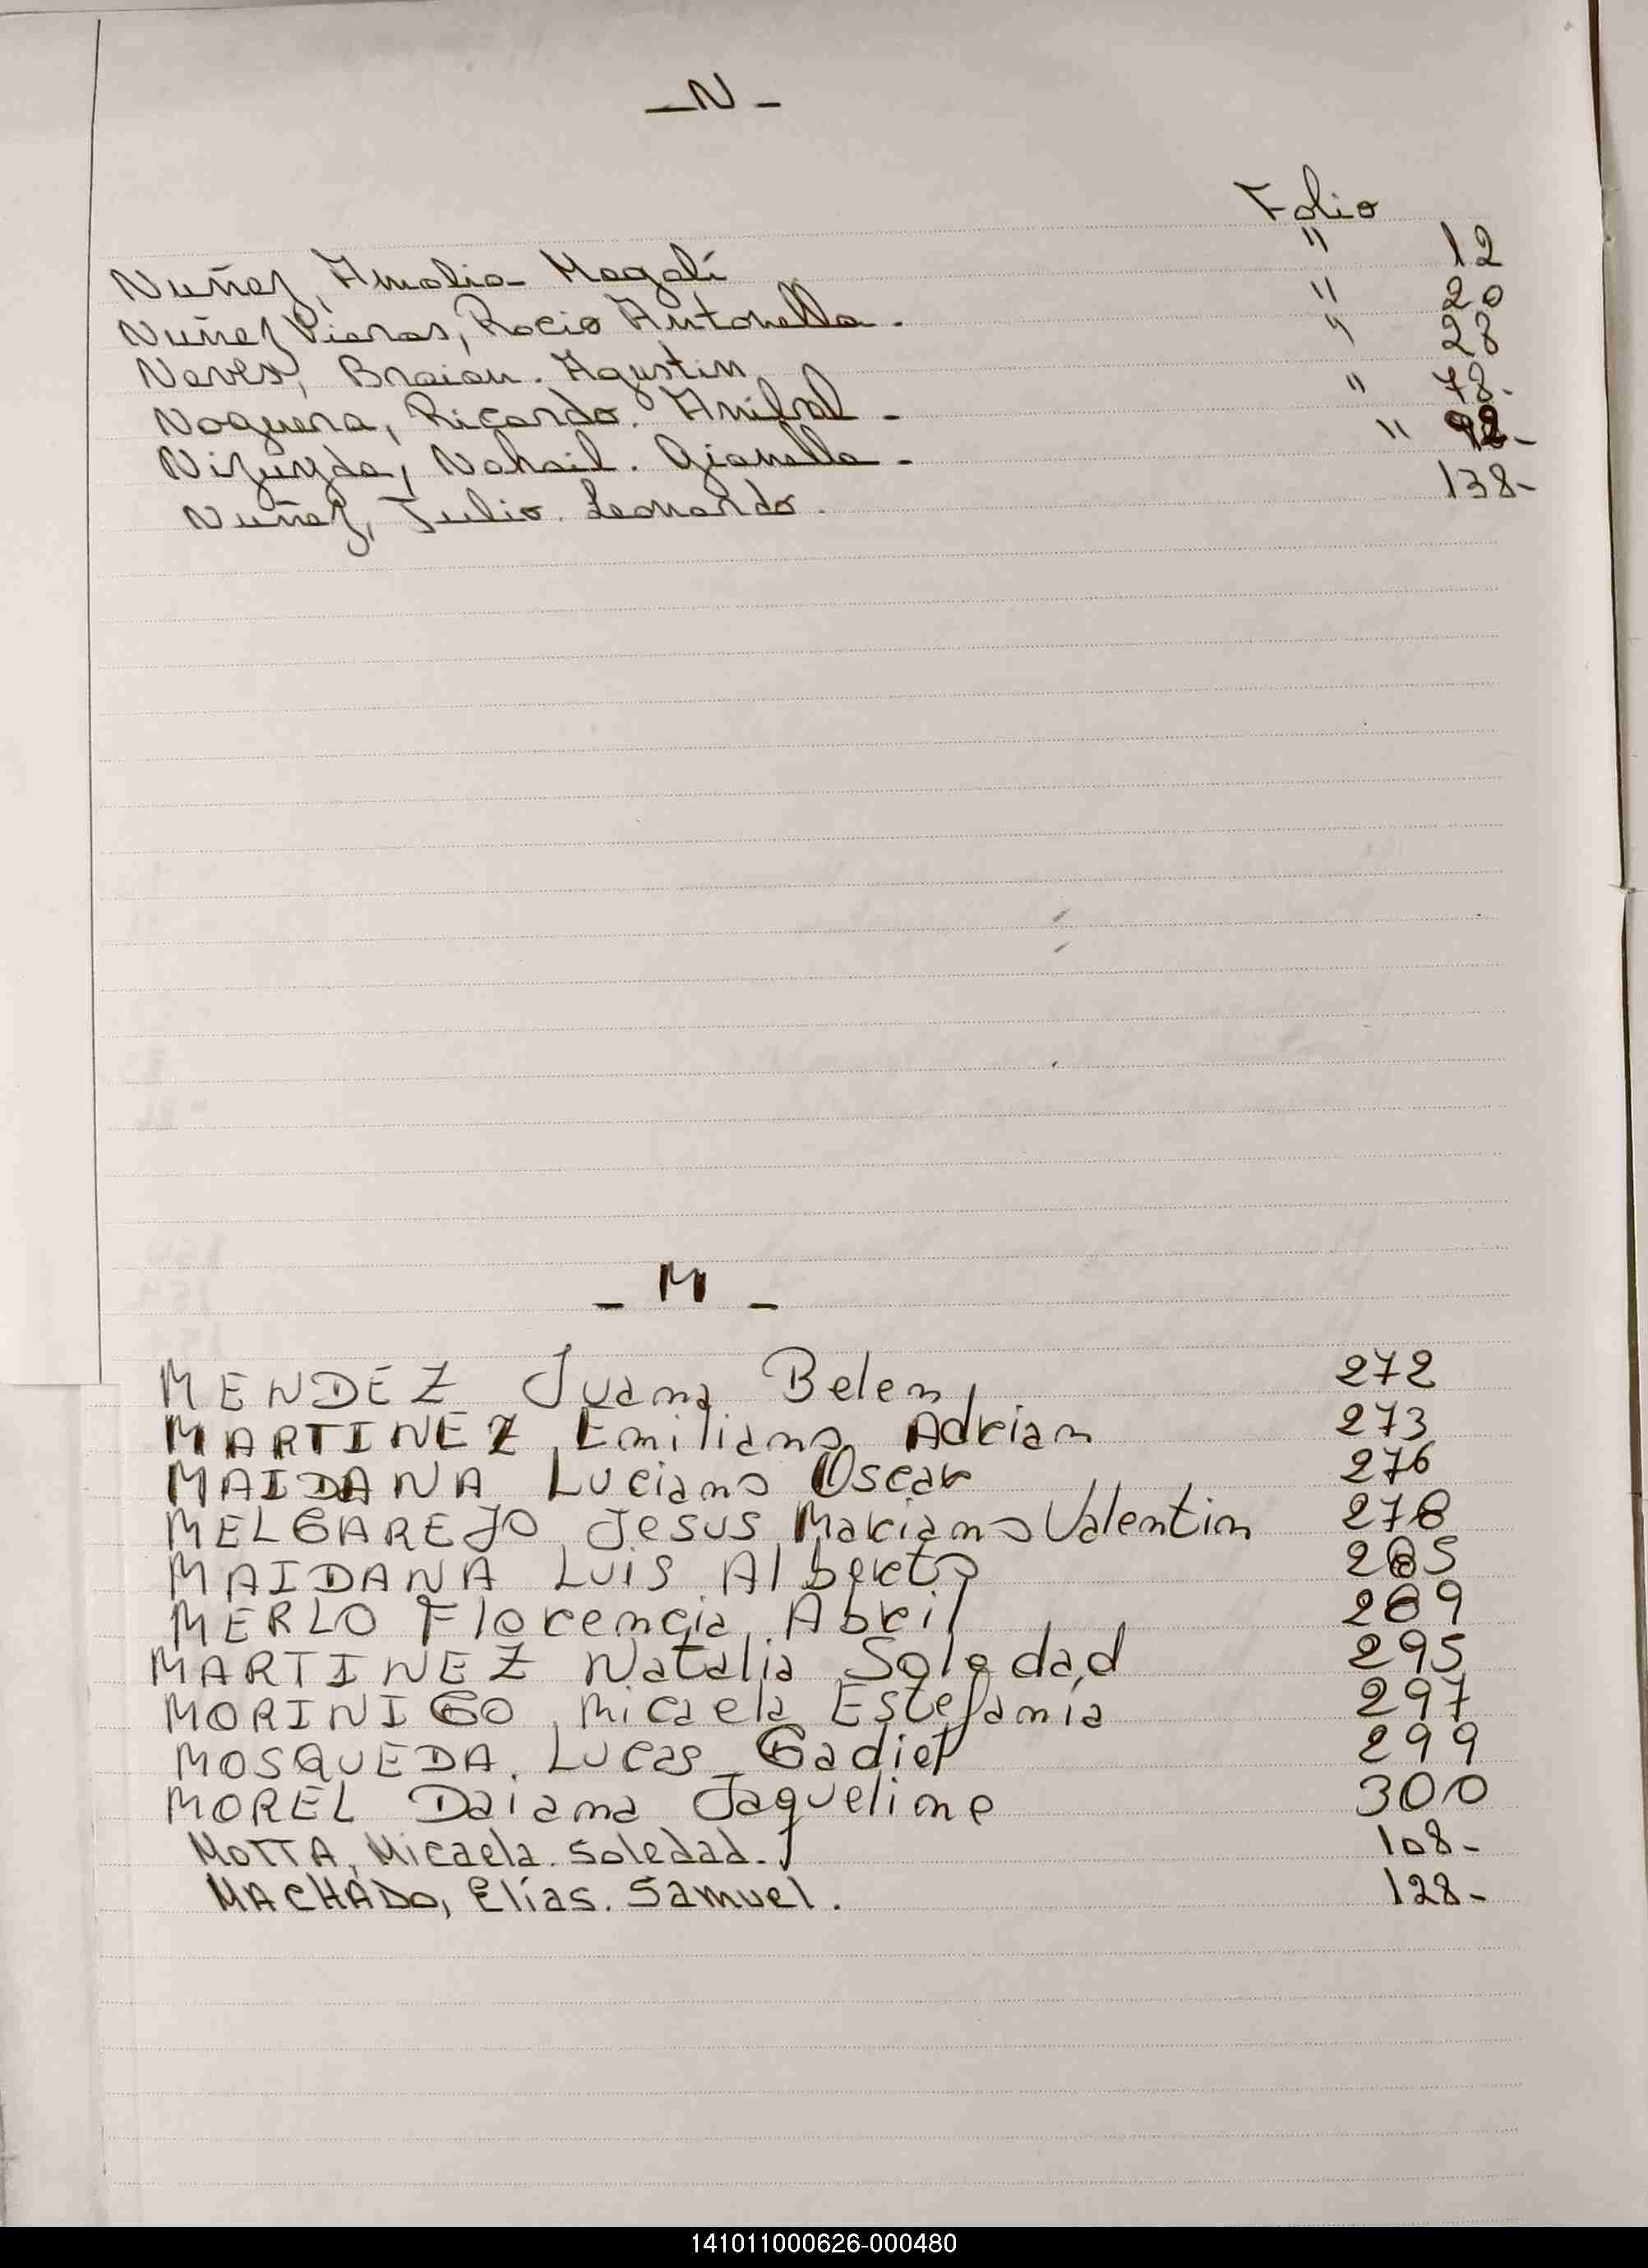 _N_
Folio
Nuñez, Amalia Magalí " 12
Nuñez Vieras, Rocio Antonella. " 20
Neves, Braian. Agustin " 28
Noguera, Ricardo. Anibal - " 78.
Nizuyda, Nahail. Gianella - " 92-
Nuñez, Julio. Leonardo. 138-
_ M _
MENDEZ Juana Belen, 272
MARTINEZ, Emiliano Adrian 273
MAIDANA Luciano Oscar 276
MELGAREJO Jesus Mariano Valentin 278
MAIDANA Luis Alberto 285
MERLO Florencia Abril 289
MARTINEZ Natalia Soledad 295
MORINIGO, Micaela Estefania 297
MOSQUEDA. Lucas Gadiel 299
MOREL Daiana Jaqueline 300
MOTTA, Micaela. Soledad. 108-
MACHADO, Elías. Samuel. 128-
141011000626-000480